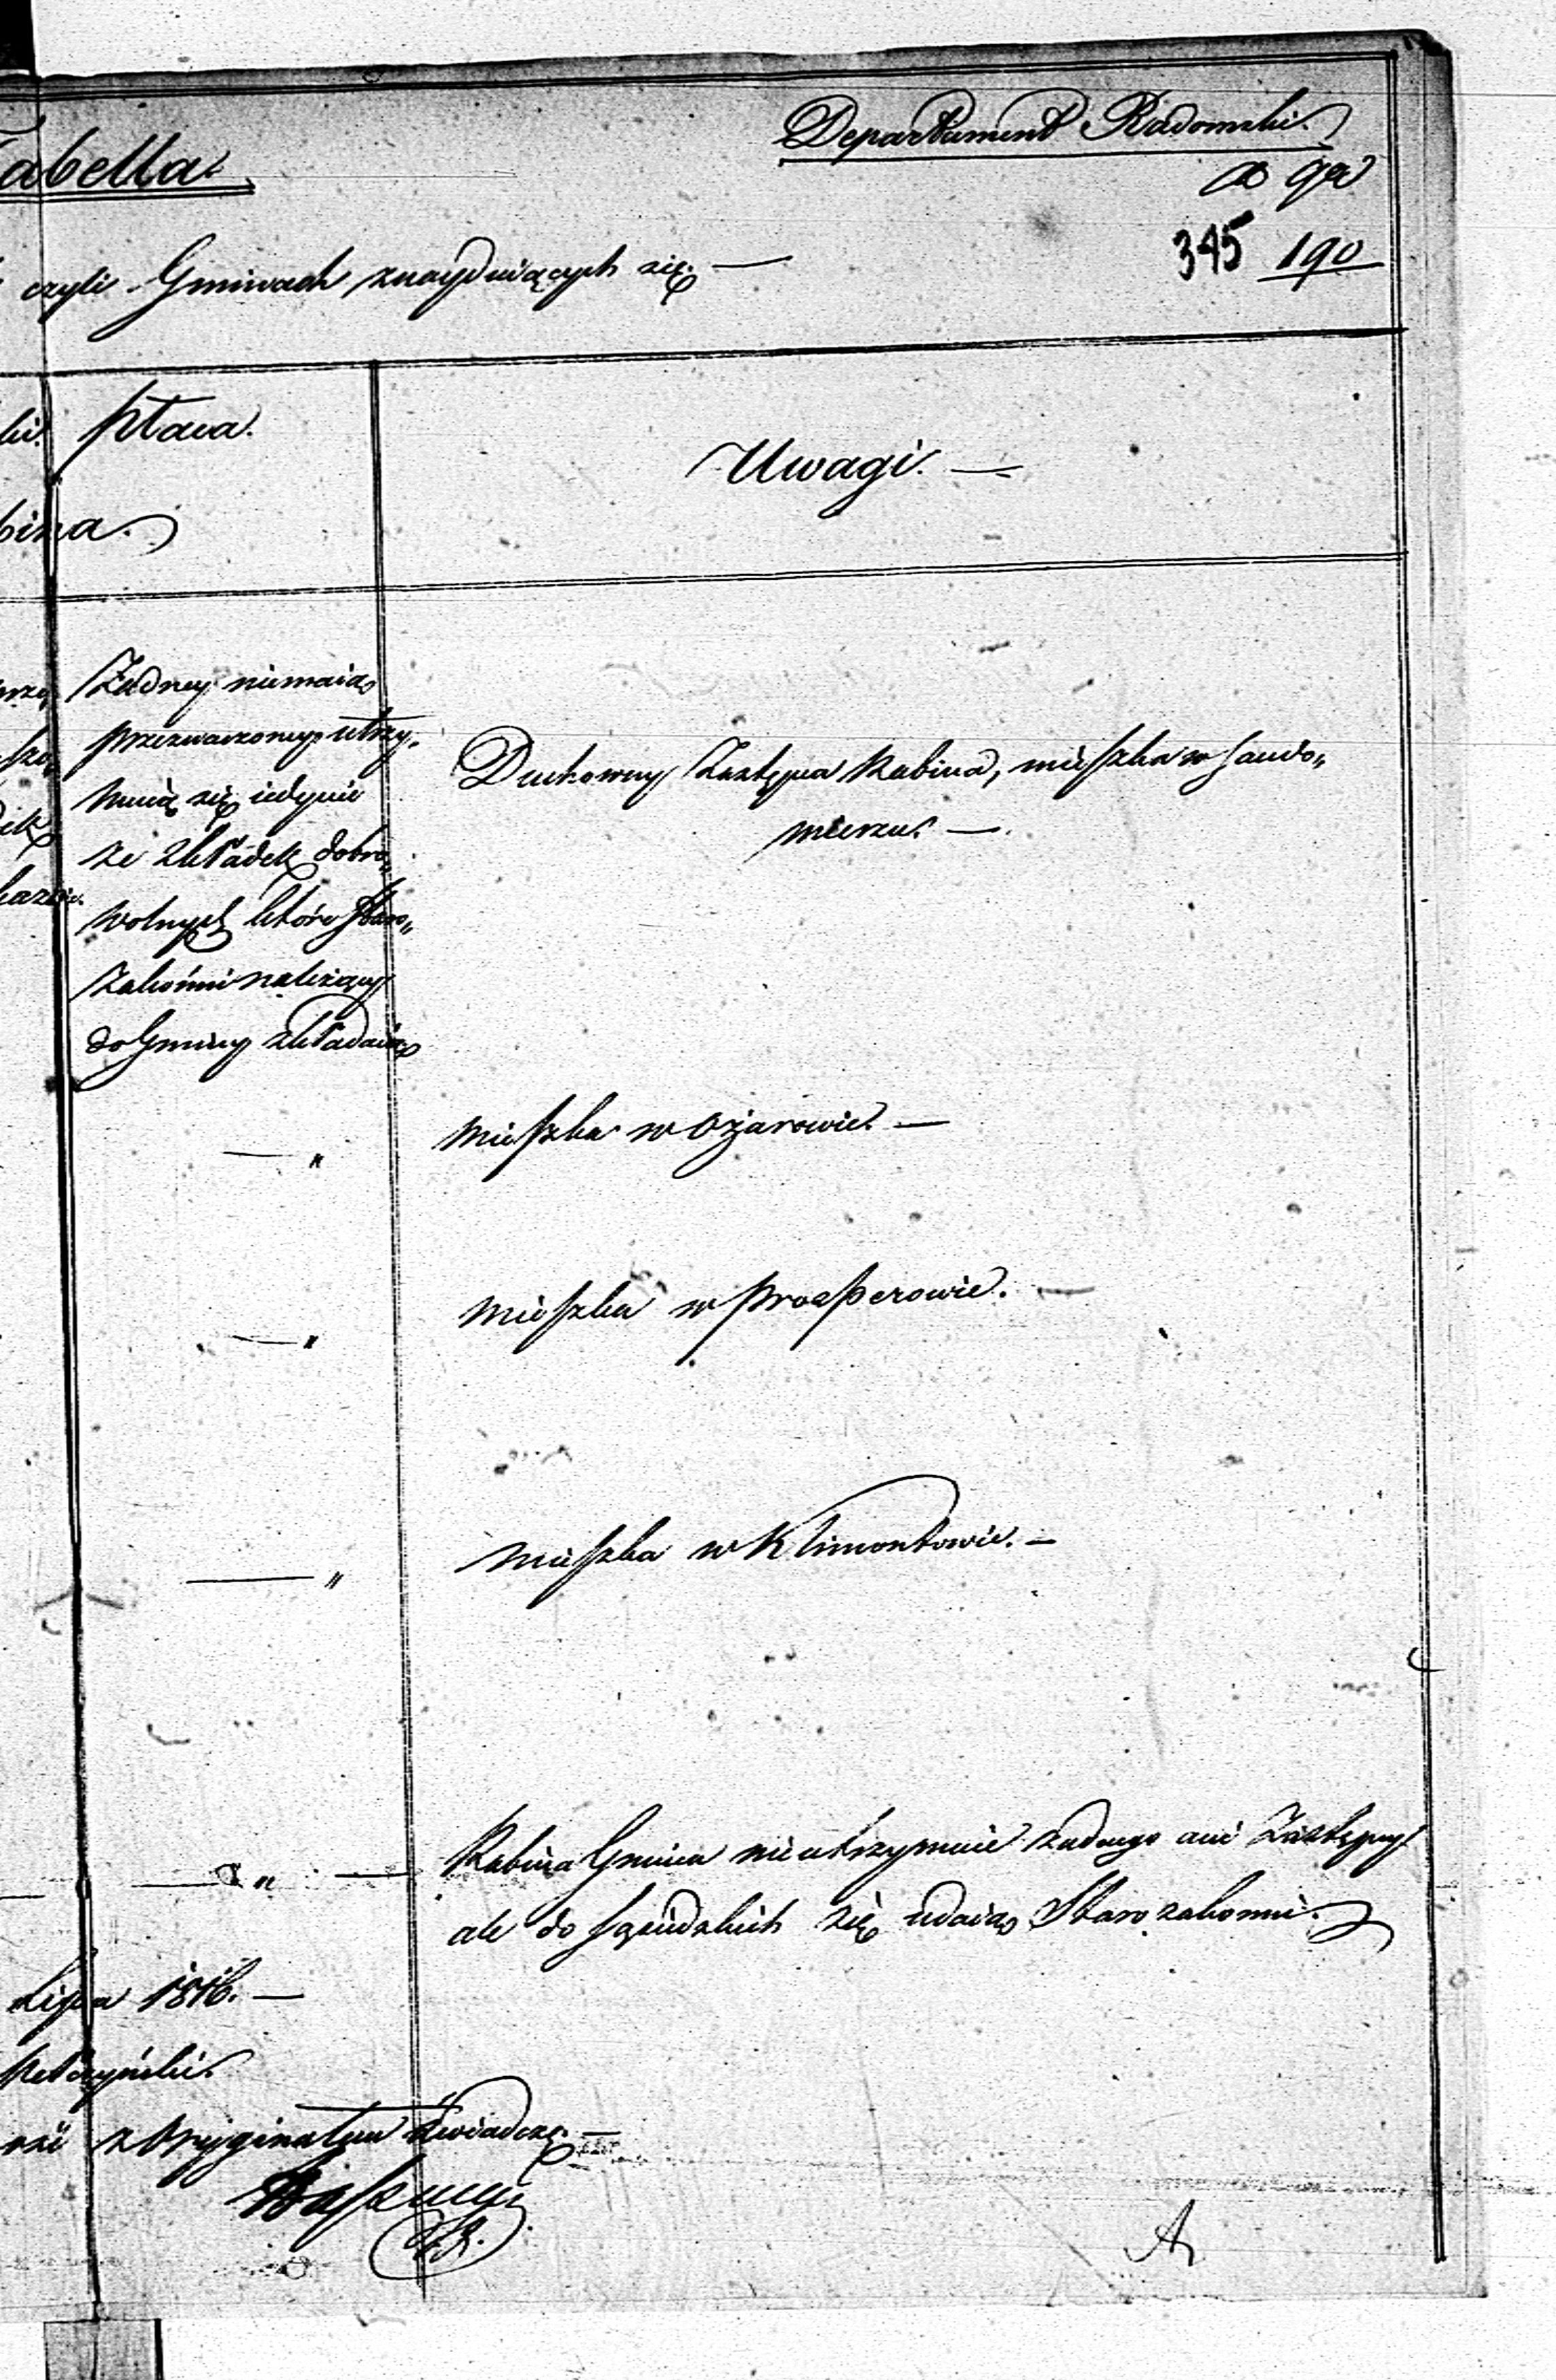 Departament Radomski.
abella.
ao qa
345 190
czyli Gminach znayduiących się. —
płaca.
Uwagi. —
bina.
Żadney niemaią
przeznaczoney utrzy-
muią się iedynie
ze składek dobro„
wolnych które Staro„
zakonni należący
do Gminy składaią
Duchowny Zastępca Rabina, mieszka w Sando„
mierzu. —
— „ mieszka w Ożarowie. —
— „ mieszka w Prosperowie. —
— „ mieszka w Klimontowie. —
— „ — Rabina Gmina nieutrzymuie żadnego ani Zastępcy
ale do sąsiedzkich się udaią Starozakonni.
Lipca 1816. —
z Oryginałem świadczę. —